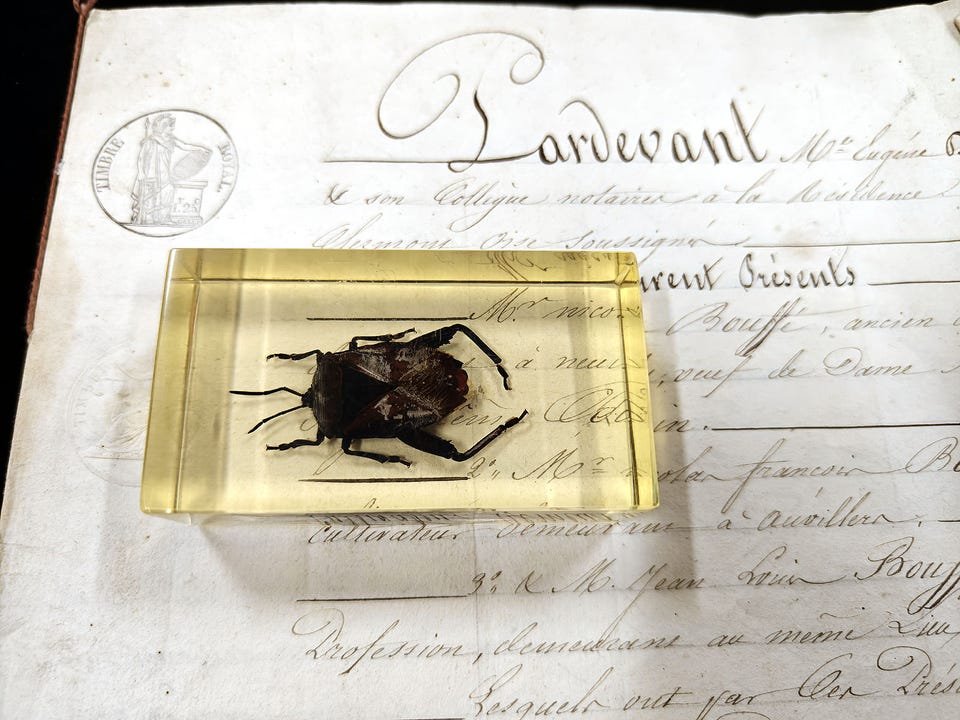 TIMBRE ROYAL
Pardevant Me Eugène
& son Collègue notaires à la Résidence
Clermont Oise soussignés
urent Présents
Mr. nico
Bouffé, ancien
à neui , veuf de Dame
in.
2° Mr nicolas françois B
cultivateur demeurant à auvillers.
3° & M. Jean Louis Bouff
Profession, demeurant au même Lieu
Lesquels ont par Ces Prés